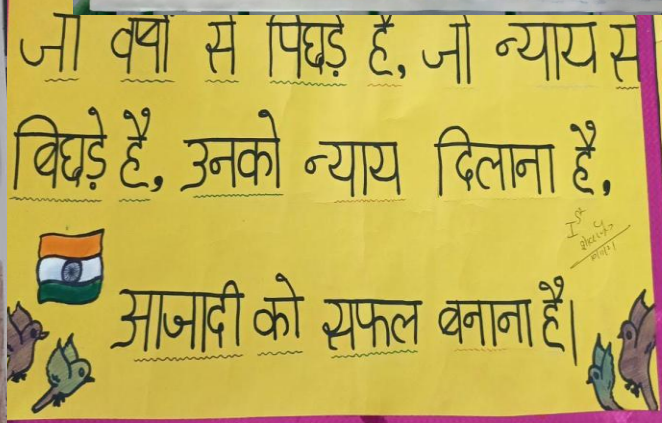 जो वर्षों से पिछड़े है, जो न्याय से
बिछड़े है, उनको न्याय दिलाना है,
Ist
आजादी को सफल बनाना है।